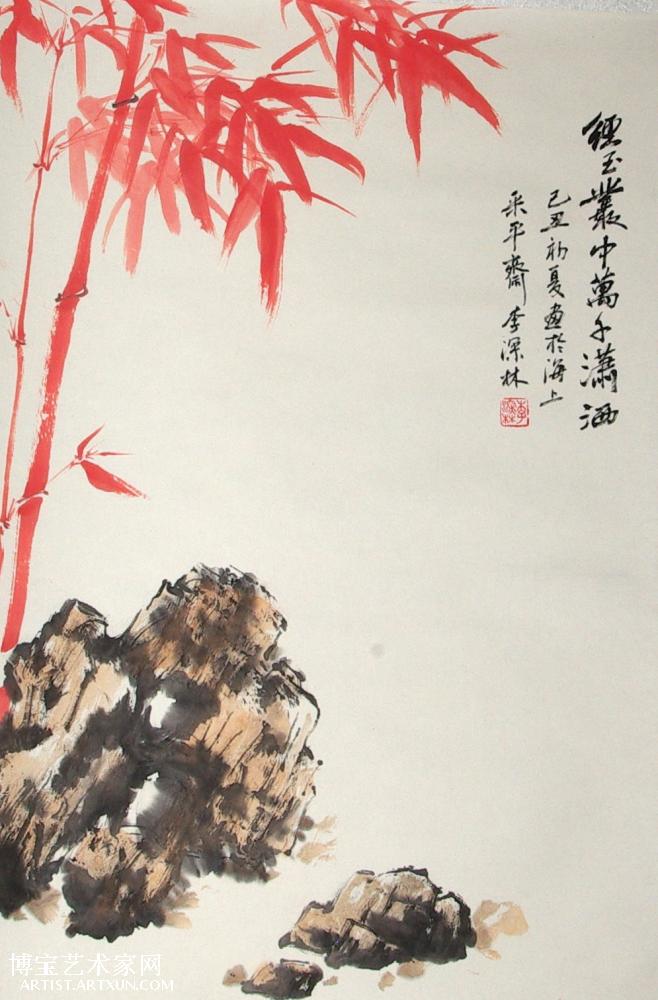 玉叢中萬千瀟洒
己丑初夏畫於海上
采平齋李深林
李深林
博宝艺术家网
ARTIST.ARTXUN.COM